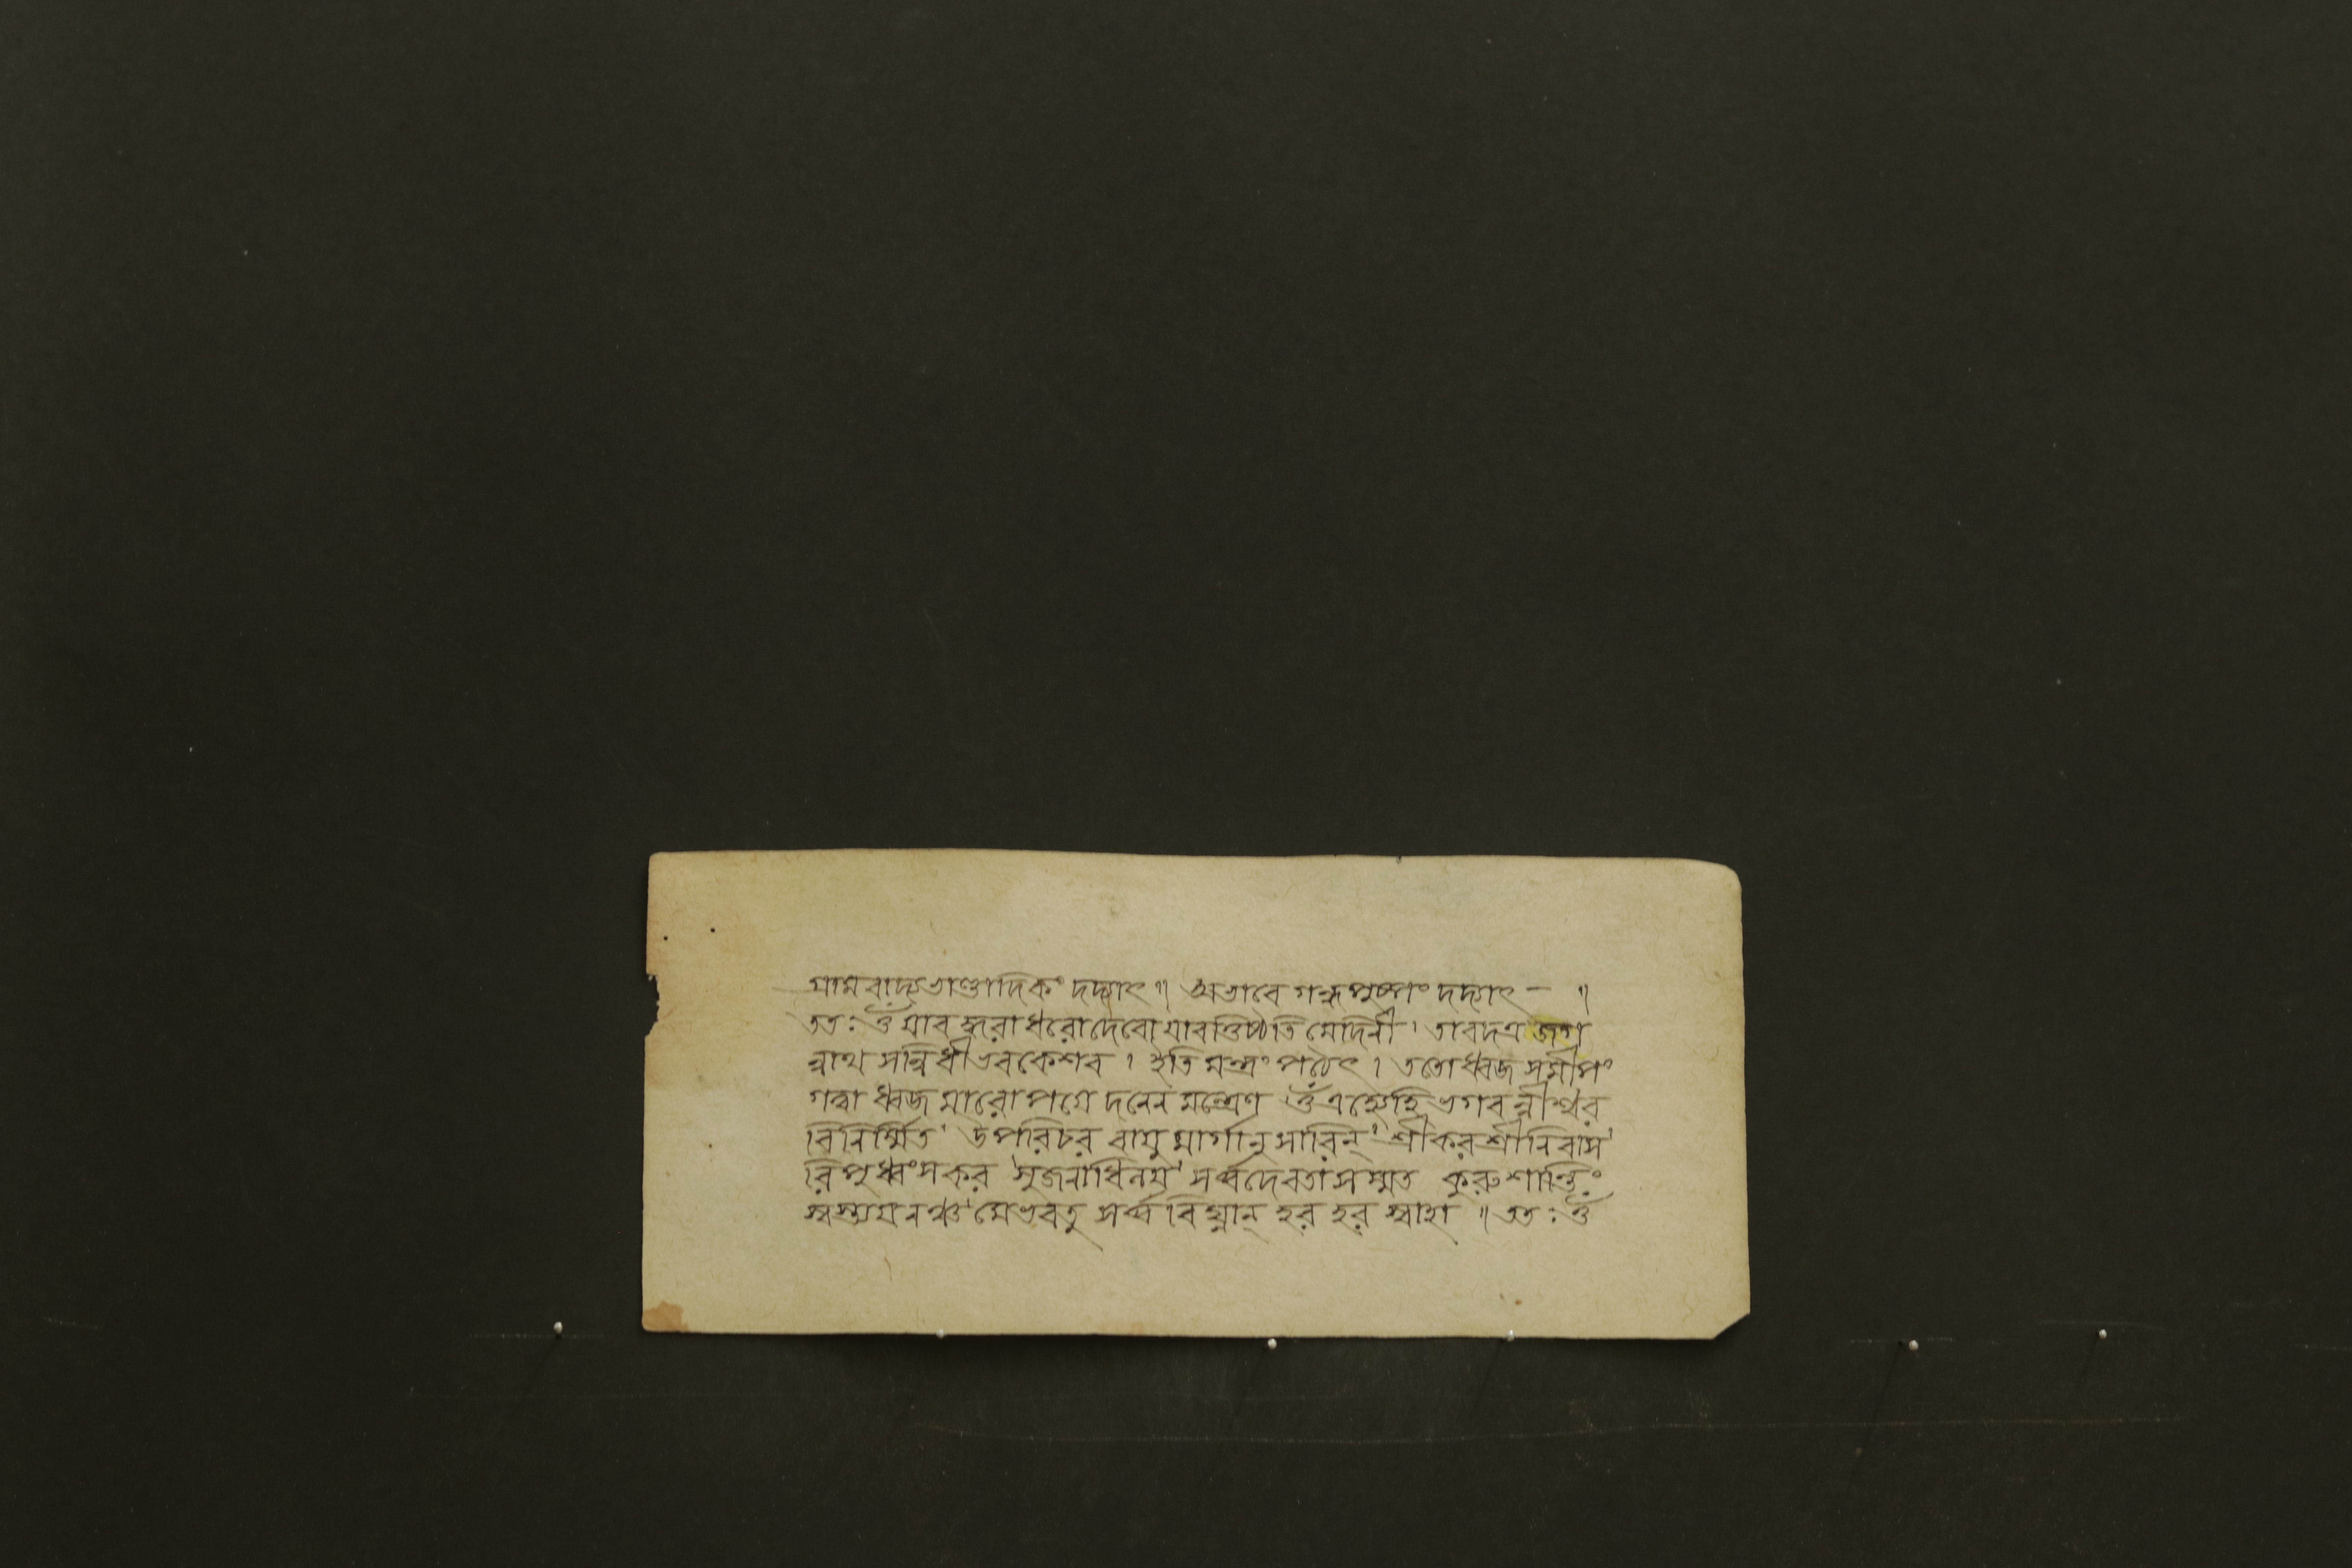 গ্রামবাদ্যভাণ্ডাদিকং দদ্যাৎ॥ অভাবে গন্ধপুষ্পং দদ্যাৎ — ॥
ততঃ ওঁ যাবদ্ধরাধরোদেবো যাবত্তিষ্ঠতি মেদিনী। তাবদত্র জগ
ন্নাথ সন্নিধীভবকেশব। ইতি মন্ত্রং পঠেৎ। ততোধ্বজ সমীপং
গত্বা ধ্বজমারোপয়ে দনেন মন্ত্রেণ ওঁ এহ্যেহি ভগবন্নীশ্বর
বিনির্ম্মিত। উপরিচর বায়ু মার্গানুসারিন্। শ্রীকর শ্রীনিবাস।
রিপুধ্বংসকর সর্ব্বদেবতাসম্মত কুরু শান্তিং
স্বস্ত্যয়নঞ্চ মেভবতু সর্ব্ব বিঘ্নান্ হর হর স্বাহা ॥ ততঃ ওঁ